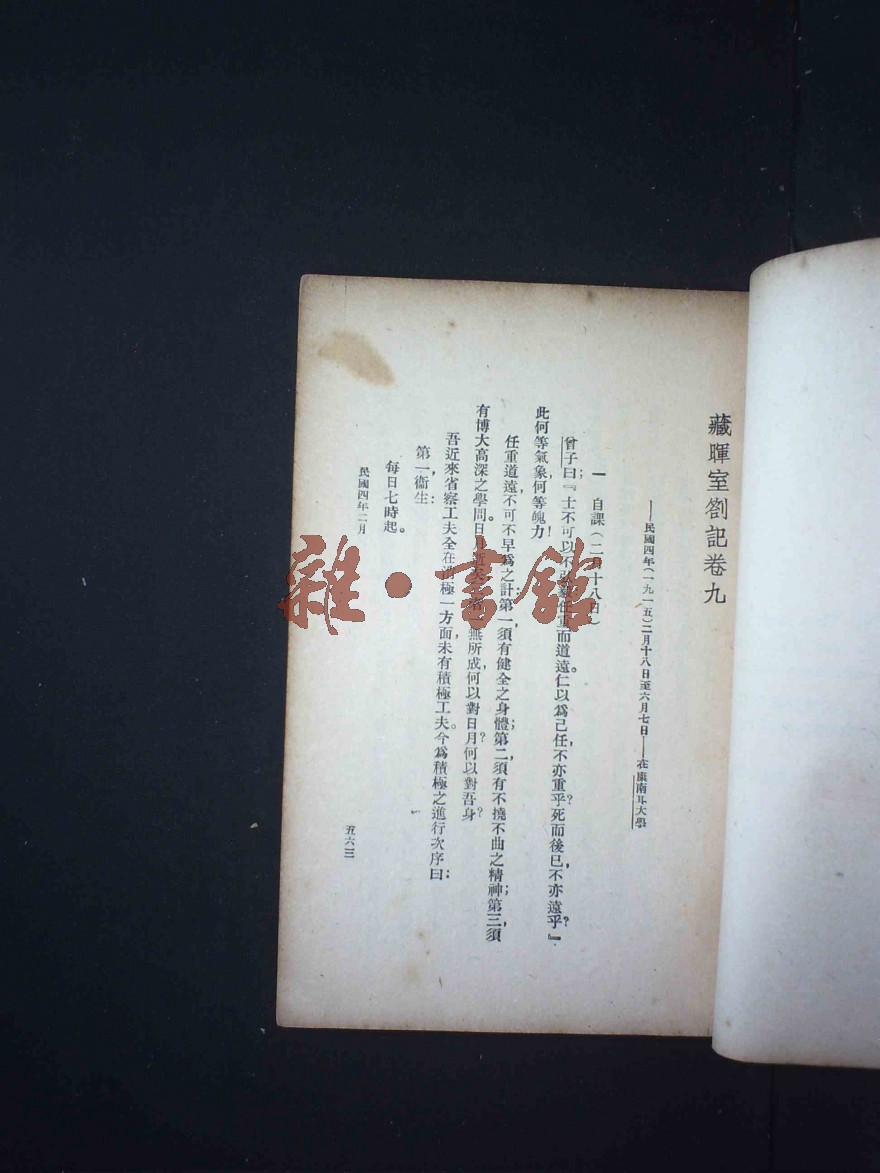 藏暉室劄記卷九
——民國四年(一九一五)二月十八日至六月七日——在康南耳大學
一 自課(二月十八日)
曾子曰:『士不可以不弘毅任重而道遠。仁以爲己任,不亦重乎?死而後已,不亦遠乎?』
此何等氣象何等魄力!
任重道遠不可不早爲之計第一,須有健全之身體;第二,須有不撓不曲之精神;第三,須
有博大高深之學問。日月逝矣 無所成,何以對日月?何以對吾身?
吾近來省察工夫全在消極一方面,未有積極工夫。今爲積極之進行次序曰:
第一,衞生:
每日七時起。
民國四年二月
五六三
雜·書館